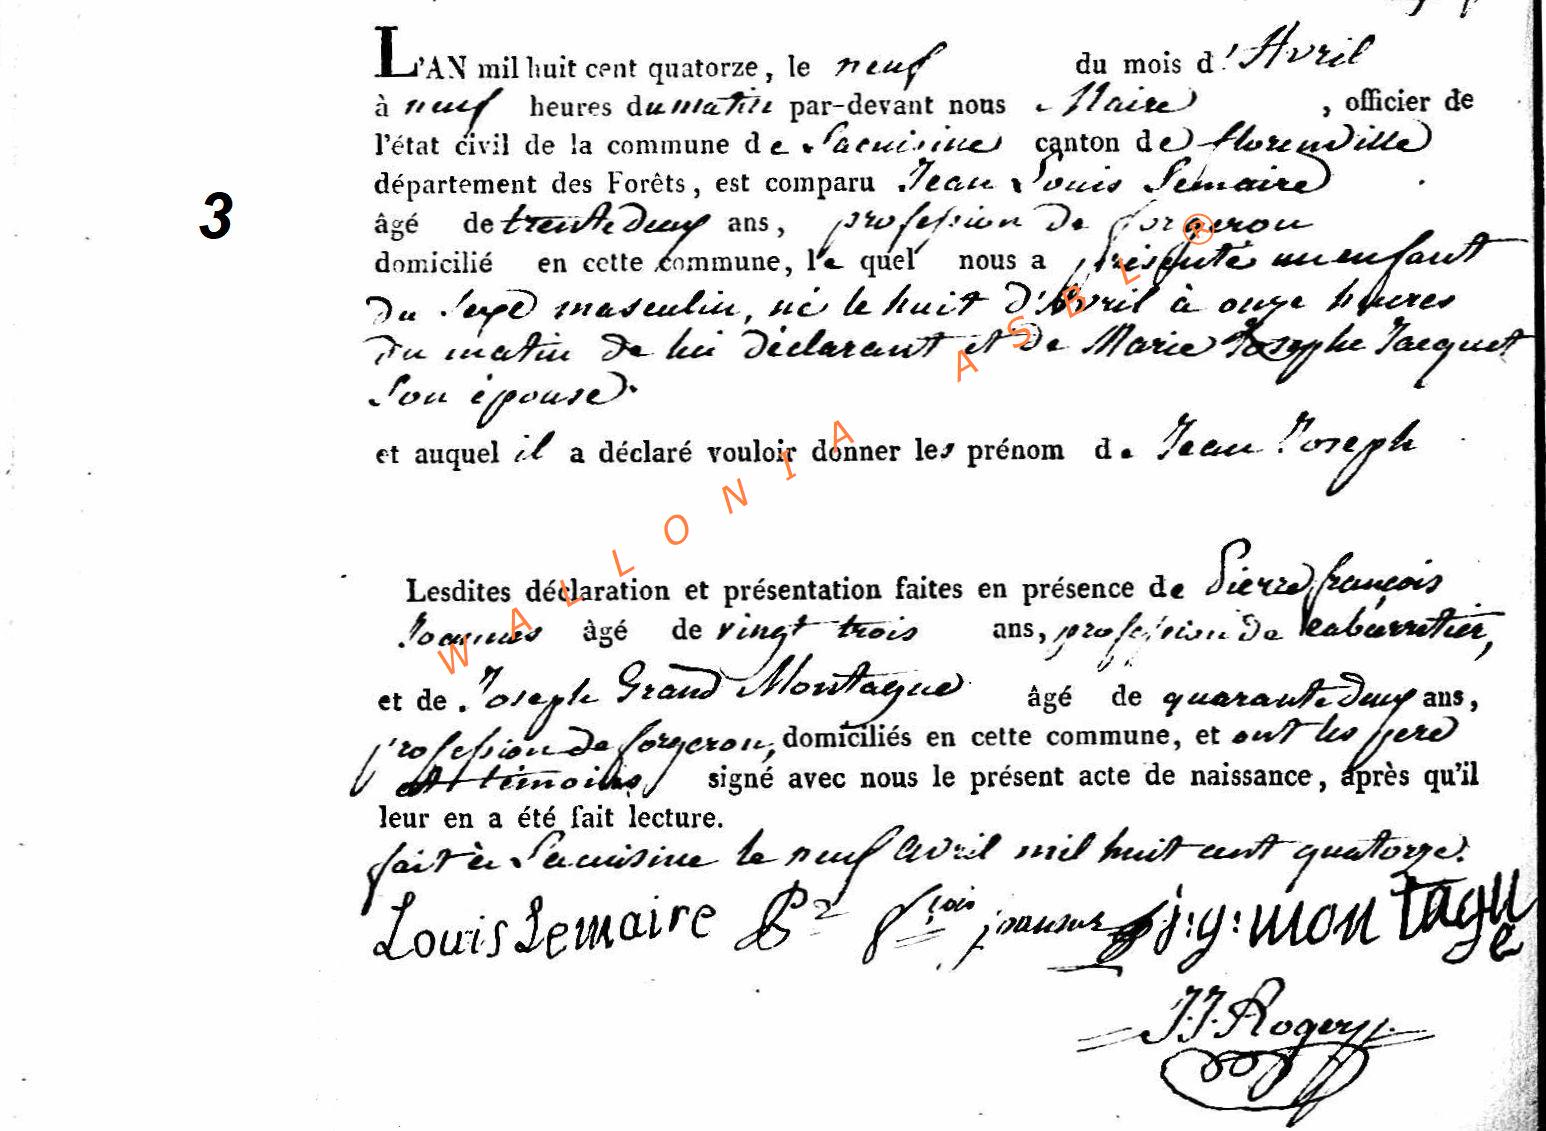 L'AN mil huit cent quatorze, le neuf du mois d'Avril
à neuf heures du matin par-devant nous Maire, officier de
l'état civil de la commune de Lacuisine canton de florenville
département des Forêts, est comparu Jean Louis Lemaire
3
âgé de trente deux ans, profession de forgeron
domicilié en cette commune, le quel nous a présenté un enfant
du sexe masculin, né le huit d'Avril à onze heures
du matin de lui déclarant et de Marie Josephe Jacquet
Son épouse.
et auquel il a déclaré vouloir donner les prénom de Jean Joseph
WALLONIA ASBL ®
Lesdites déclaration et présentation faites en présence de Pierre françois
Joannes âgé de vingt trois ans, profession de cabarretier,
et de Joseph Grand Montagne âgé de quarante deux ans,
profession de forgeron, domiciliés en cette commune, et ont les pere
et témoins signé avec nous le présent acte de naissance, après qu'il
leur en a été fait lecture.
fait à Lacuisine le neuf avril mil huit cent quatorze.
Louis Lemaire j:g:montague
J.J. Rogery